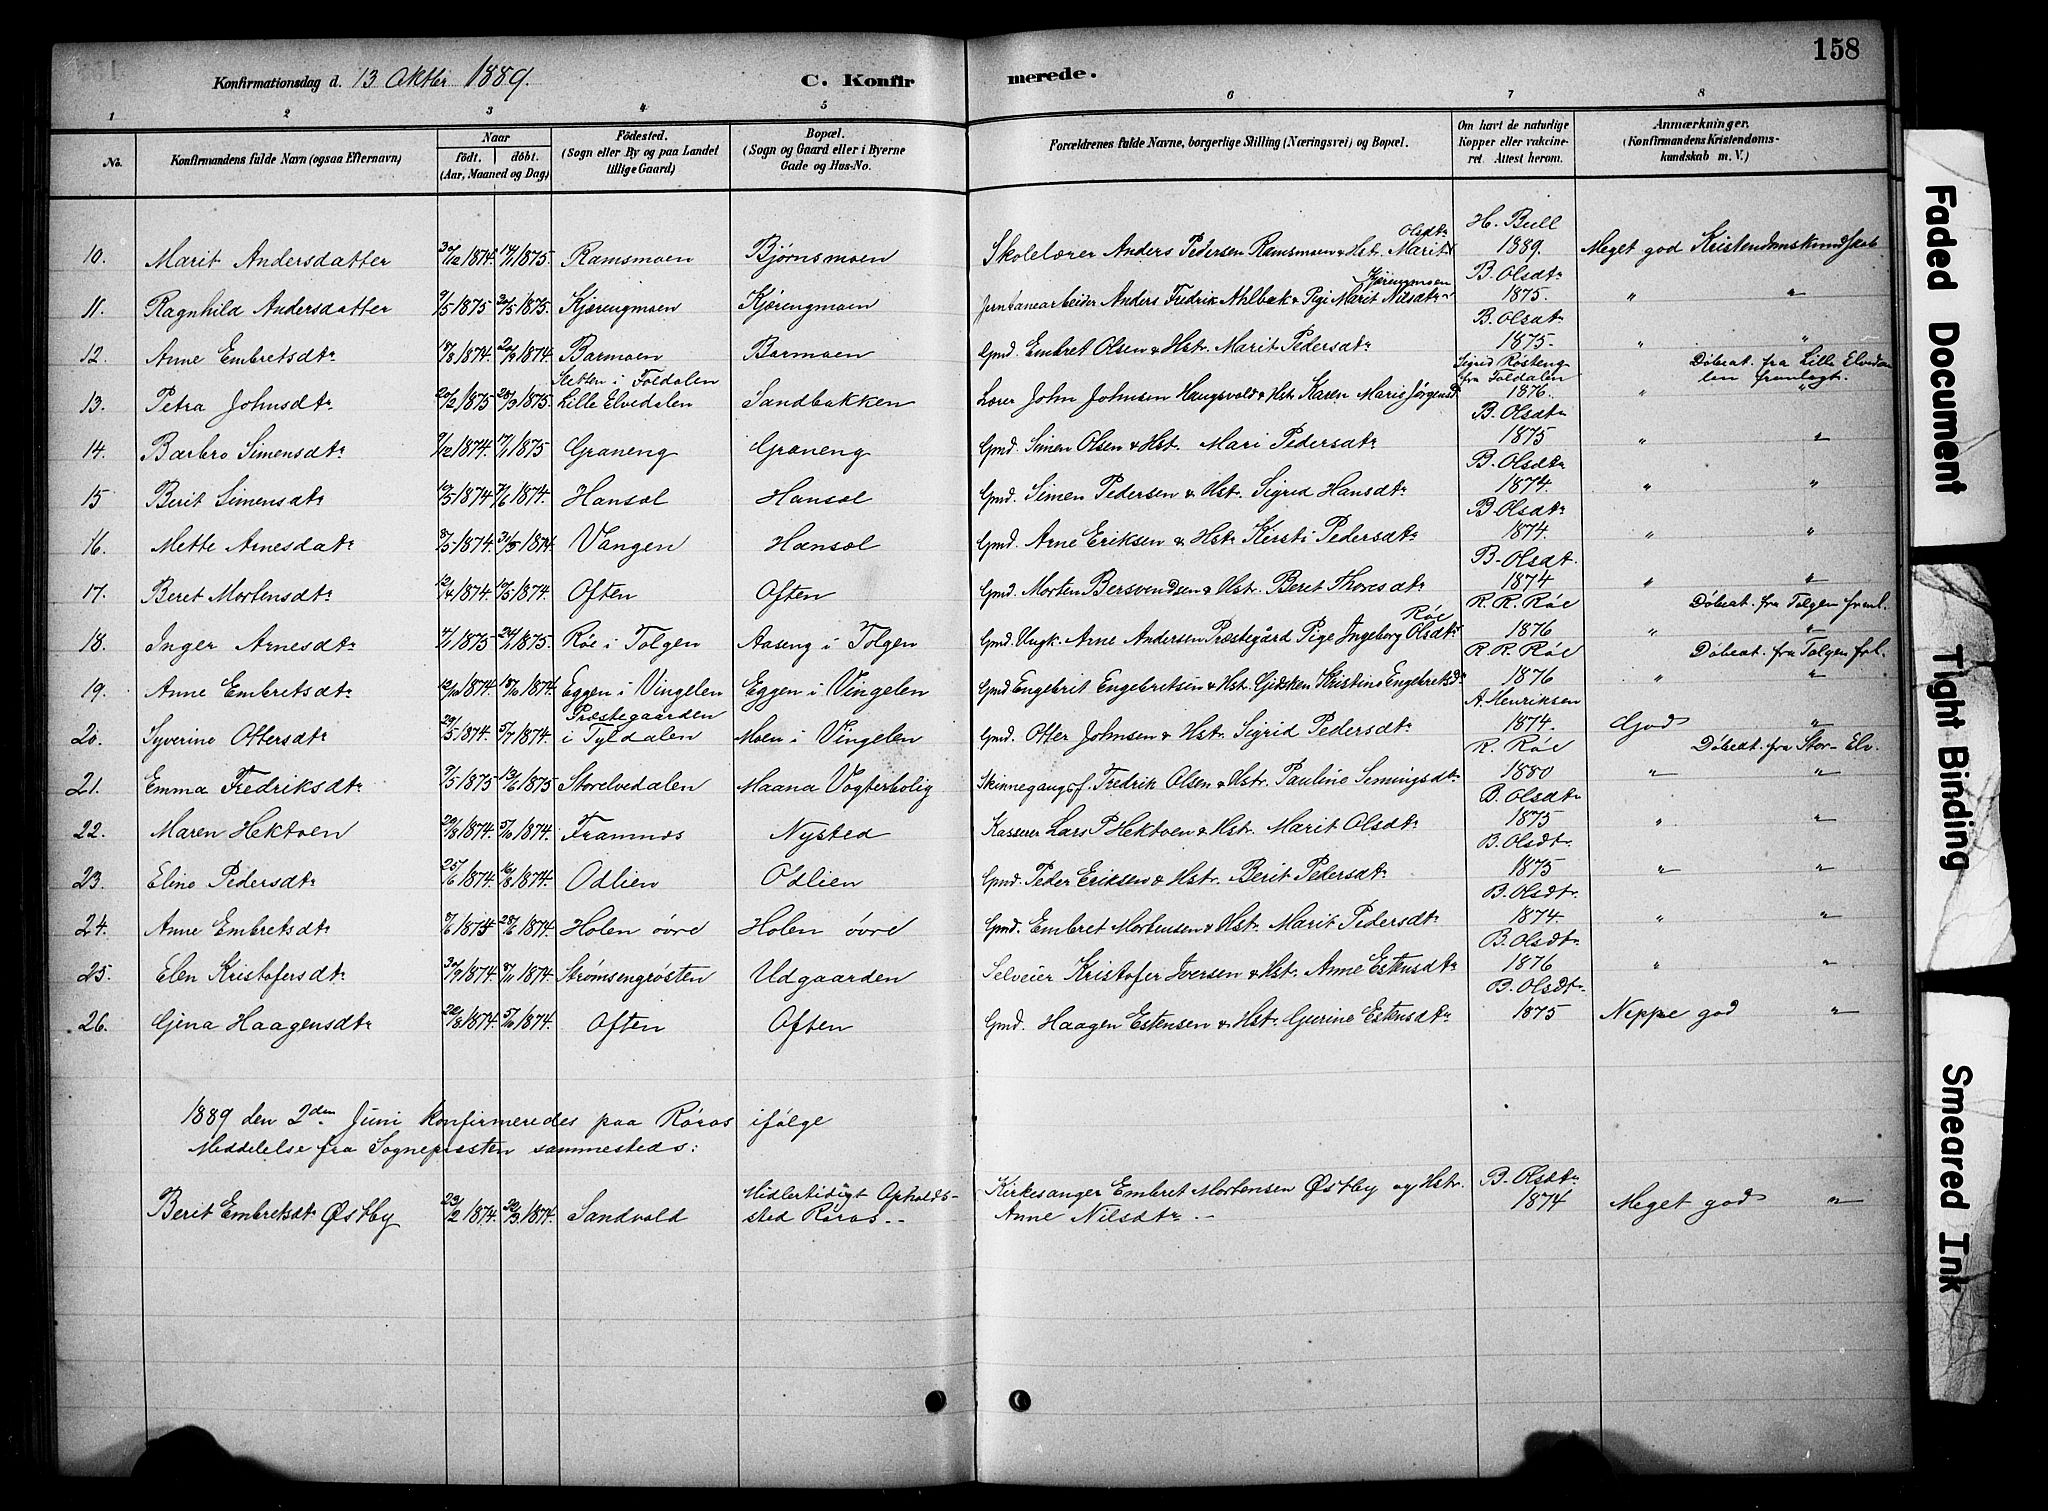 158
Konfirmationsdag d. 13 Oktbr 1889.
C. Konfirmerede.
1 2 3 4 5 6 7 8
No.
Konfirmandens fulde Navn (ogsaa Efternavn)
Naar
födt. döbt.
(Aar, Maaned og Dag)
Födested.
(Sogn eller By og paa Landet
tillige Gaard)
Bopæl.
(Sogn og Gaard eller i Byerne
Gade og Hus-No.
Forældrenes fulde Navne, borgerlige Stilling (Næringsvei) og Bopæl.
Om havt de naturlige
Kopper eller vakcine-
ret. Attest herom.
Anmærkninger.
(Konfirmandens Kristendoms-
kundskab m. V.)
10. Marit Andersdatter 30/12 1874. 17/1 1875. Ramsmoen Bjørnsmoen Skolelærer Anders Pedersen Ramsmoen & Hstr. Marit Olsdtr H. Bull 1889. Meget god Kristendomskundskab
11. Ragnhild Andersdatter 9/5 1875 30/5 1875. Kjærengmoen Kjørengmoen Jernbanearbeider Anders Fredrik Ahlbæk & Pige Marit Nilsdtr Kjærengmoen B. Olsdtr 1875. " "
12. Anne Embretsdtr 18/8 1874. 20/9 1874. Barmoen Barmoen Gmd. Embret Olsen & Hstr. Marit Pedersdtr B. Olsdtr 1875. " "
13. Petra Johnsdtr 20/2 1875 28/3 1875. Sletten i Foldalen Lille Elvedalen Sandbakken Lærer John Johnsen Haugsvold & Hstr Karen Marie Jørgensd. Sigrid Røsteng fra Foldalen 1876. " Døbeat. fra Lille Elvedalen fremlagt. "
14. Barbro Simensdtr 9/12 1874. 17/1 1875 Græneng Græneng Gmd. Simen Olsen & Hstr. Mari Pedersdtr B. Olsdtr 1875 " "
15 Berit Simensdtr 10/5 1874 7/6 1874. Hansæl Hansæl Gmd. Simen Pedersen & Hstr. Sigrid Hansdtr B. Olsdtr 1874. " "
16. Mette Arnesdatr 8/5 1874. 31/5 1874. Vangen Hansæl Gmd. Arne Eriksen & Hstr Kersti Pedersdtr B. Olsdtr 1874. " "
17. Beret Mortensdtr 12/4 1874. 10/5 1874. Often Often Gmd. Morten Bersvendsen & Hstr. Beret Thoresdtr B. Olsdt. 1874 " "
18. Inger Arnesdtr 4/1 1875 24/1 1875. Røe i Tolgen Aaseng i Tolgen Gmd. Ungk. Arne Andersen Præstegård Pige Ingeborg Olsdtr Røe R. R. Røe 1876 " Døbeat. fra Tolgen freml. "
19. Anne Embretsdtr 12/9 1874. 18/10 1874. Eggen i Vingelen Eggen i Vingelen Gmd Engebrit Engebretsen & Hst. Gidsken Kristine Engebretsdr R. R. Røe 1876 " Døbeat. fra Tolgen frl. "
20. Syverine Ottersdtr 29/5 1874. 5/7 1874. Præstegaarden i Tyldalen Moen i Vingelen Gmd. Otter Johnsen & Hstr. Sigrid Pedersdtr A. Henriksen 1874. God "
21. Emma Fredriksdtr 9/5 1875 13/6 1875 Storelvedalen Maana Vogterbolig Skinnegangsf. Fredrik Olsen & Hstr. Pauline Semingsdtr R. Røe 1880 " Døbeat. fra Stor-Elv. "
22. Maren Hektoen 29/8 1874. 5/10 1874. Framnæs Nysted Kasserer Lars P Hektoen & Hstr. Marit Olsdtr B. Olsdtr 1875 " "
23. Eline Pedersdtr 25/6 1874. 16/8 1874. Odlien Odlien Gmd. Peder Eriksen & Hstr. Berit Pedersdtr. B. Olsdtr. 1875 " "
24. Anne Embretsdtr 8/6 1874 28/6 1874. Holen øvre Holen øvre Gmd. Embret Mortensen & Hstr. Marit Pedersdtr B. Olsdtr. 1874. " "
25. Elen Kristofersdtr 30/9 1874. 8/11 1874. Strømsengrøsten Udgaarden Selveier Kristofer Iversen & Hstr. Anne Estensdtr B. Olsdtr. 1876 " "
26. Gjena Haagensdtr 22/8 1874. 5/10 1874. Often Often Gmd. Haagen Estensen & Hstr. Gurine Estensdtr B. Olsdtr. 1875 Neppe god "
1889 den 2den Juni konfirmeredes paa Røros ifølge
Meddelelse fra Sognepræsten sammesteds:
Berit Embretsdtr Østby 23/2 1874. 22/3 1874. Sandvold Midlertidigt Opholdssted Røros.- Kirkesanger Embret Mortensen Østby og Hstr. Anne Nilsdtr.- B. Olsdtr. 1874 Meget god "
Faded Document
Tight Binding
Smeared Ink